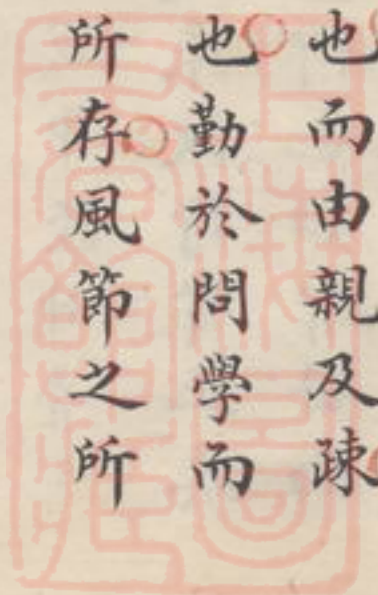 也而由親及疎
也勤於問學而
所存風節之所